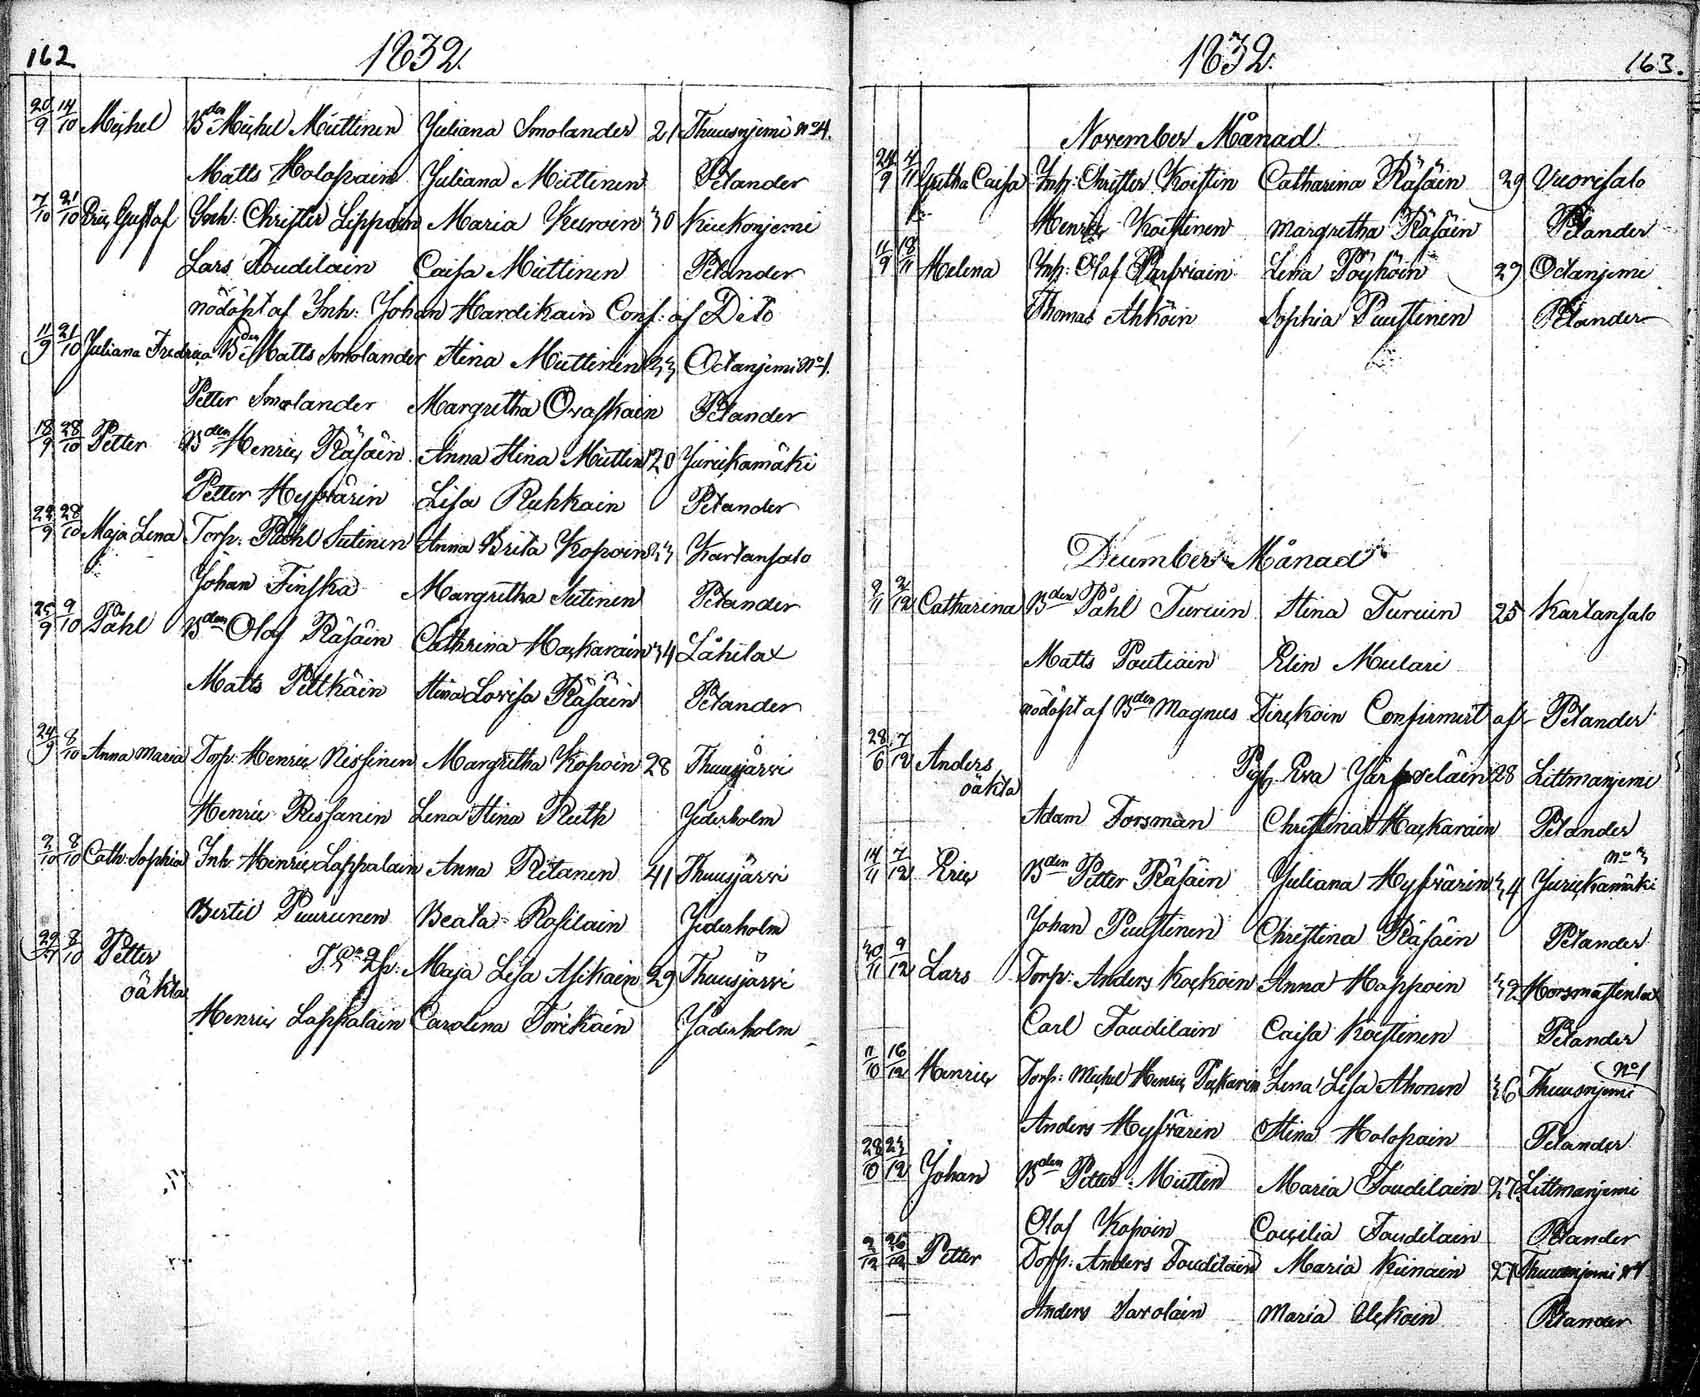 162
1832.
20/9 14/10 Michel Bden Michel Miettinen Juliana Smolander 21 Thuusnjemi No 4.
Matts Holopain Juliana Miettinen Pelander
7/10 21/10 Eric Gustaf Inh: Christer Lippoin Maria Kuroin 30 Kiukonjemi
Lars Toudilain Caisa Miettinen Pelander
nödöpt af Inh: Johan Hardikain Conf: af Dito
11/9 21/10 Juliana Fredrica Bden Matts Smolander Stina Miettinen 33 Octanjemi No 1.
Petter Smolander Margretha Ovaskain Pelander
18/9 28/10 Petter Bden Henric Räsäin Anna Stina Miettin 20 Jurickamäki
Petter Hyfvärin Lisa Ruhkain Pelander
22/9 28/10 Maja Lena Torp: Påhl Sutinen Anna Brita Kopoin 33 Kartansalo
Johan Finska Margretha Sutinen Pelander
25/9 9/10 Påhl Bden Olof Räsäin Cathrina Hackarain 34 Låhilax
Matts Pitkäin Stina Lovisa Räsäin Pelander
24/9 8/10 Anna Maria Torp: Henric Nissinen Margretha Kopoin 28 Thuusjärvi
Henric Rissanin Lena Stina Reith Jederholm
2/10 8/10 Cath: Sophia Inh: Henric Lappalain Anna Ritanen 41 Thuusjärvi
Bertil Puurunen Beata Rosilain Jederholm
29/ 8/10 Petter Maja Lisa Asikain 29 Thuusjärvi
öäkta
Henric Lappalain Carolina Torikain Jäderholm
1832.
163.
November Månad
24/9 4/11 Gretha Caisa Inh: Christer Koistin Catharina Räsäin 29 Vuorisalo
Henric Koistinen Margretha Räsäin Pelander
11/9 18/11 Helena Inh: Olof Parfviain Lena Pöyhöin 29 Octanjemi
Thomas Ahkoin Sophia Puustinen Pelander
December Månad
9/11 2/12 Catharina Bden Påhl Turuin Stina Turuin 25 Kartansalo
Matts Poutiain Elin Mulari
nödöpt af Bden Magnus Tirckoin Confirmert af Pelander
28/6 7/12 Anders Pig: Eva Järfveläin 28 Littmanjemi
öäkta
Adam Forsman Christina Hackarain Pelander
14/11 7/12 Eric Bden Petter Räsäin Juliana Hyfvärin 34 Jurickamäki No 3
Johan Puustinen Christina Räsäin Pelander
30/11 9/12 Lars Torp: Anders Kockoin Anna Happoin 32 Horsmastenlax
Carl Taudilain Caisa Koistinen Pelander
11/10 16/12 Henric Torp: Michel Henric Pickarin Lena Lisa Ahonen 36 Thuusnjemi No 1
Anders Hyfvärin Stina Holopain Pelander
28/10 23/12 Johan Bden Petter Miettin Maria Taudilain 27 Littmanjemi
Olof Kopoin Caecilia Taudilain Pelander
2/12 26/12 Petter Torp: Anders Toudilain Maria Kiinain 27 Thuusnjemi
Anders Savolain Maria Pelander